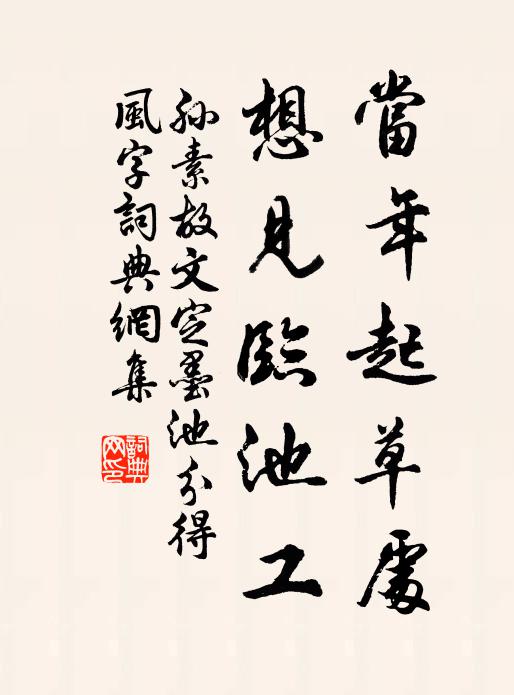 當年起草處
想見臨池工
孙素故文定墨池分得
風字詞典網集
詞典网印